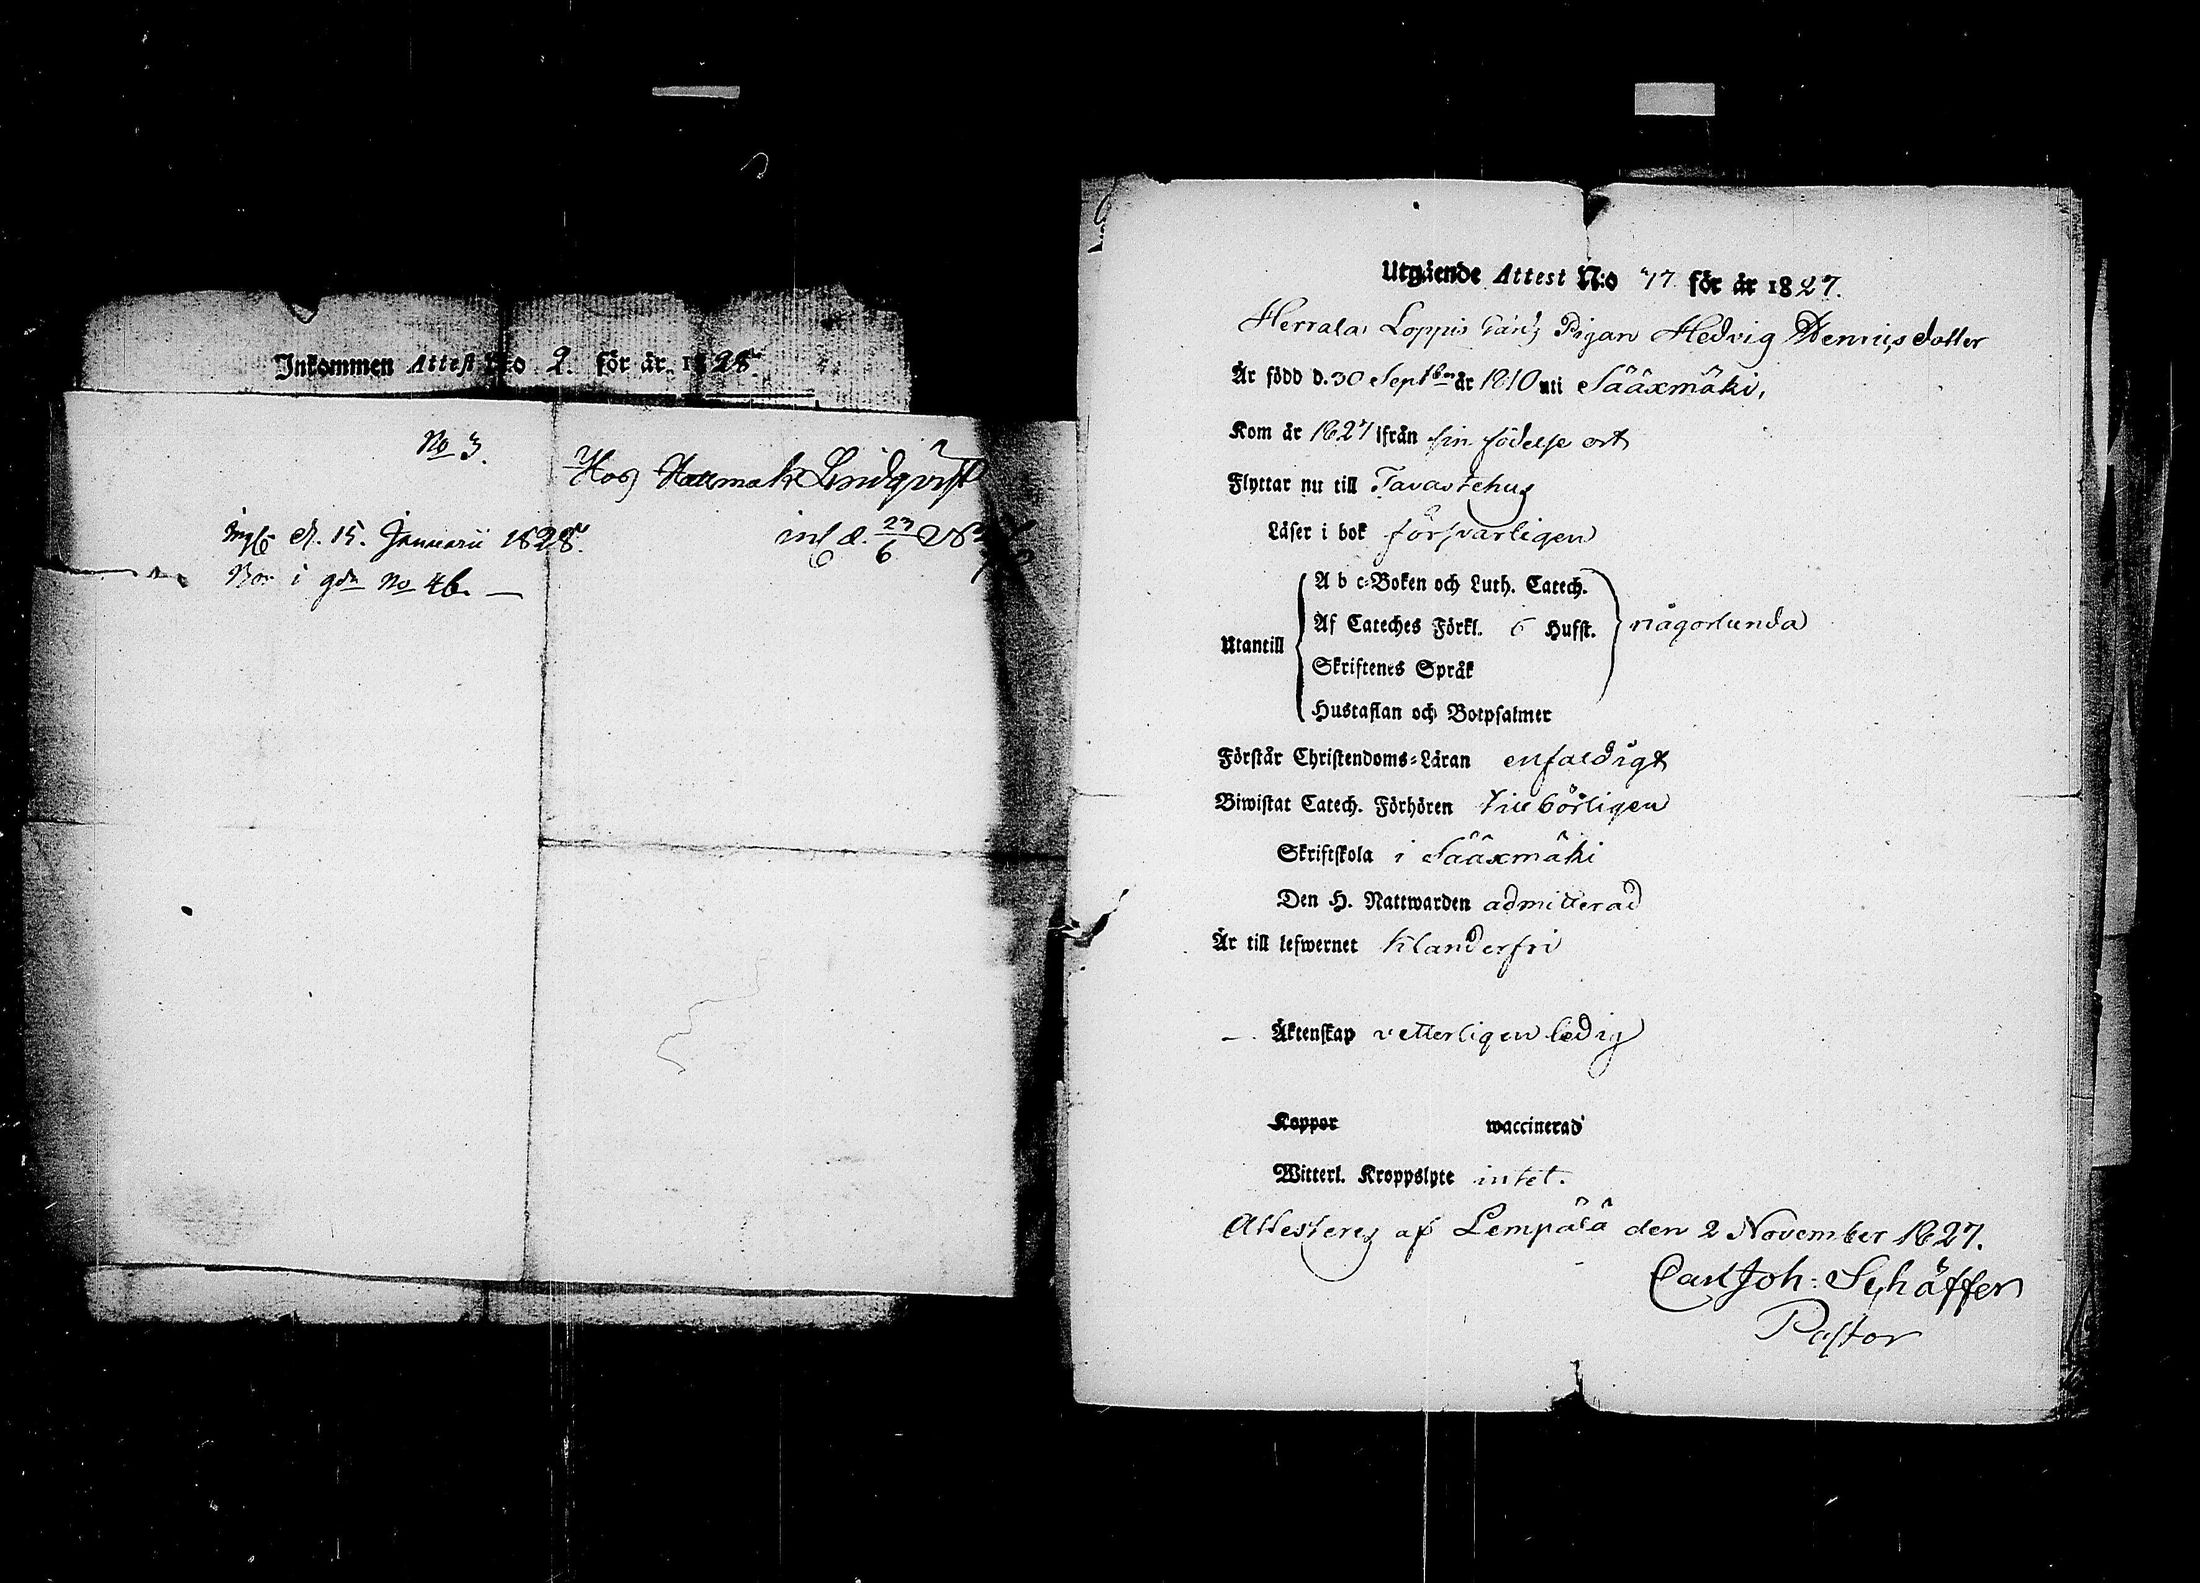 Inkommen Attest N:o 2. för år 1828.
No 3.
Hos Hattmak Lindqvist
d. 15. Januarii 1828.
Bor i gdn No 46. —
inl d. 23/6
Utgående Attest N:o 77 för år 1827.
Herrala, Loppis Pigan Hedvig Dennisdotter
Är född d. 30 Septbr år 1810 uti Sääxmäki,
Kom år 1827 ifrån sin födelse ort
Flyttar nu till Tavastehus
Läser i bok försvarligen
A b c-Boken och Luth. Catech.
Af Cateches Förkl. 6 Hufst.
någorlunda
Utantill
Skriftenes Språk
Hustaflan och Botpsalmer
Förstår Christendoms-Läran enfaldigt
Biwistat Catech. Förhören tillbörligen
Skriftskola i Sääxmäki
Den H. Nattwarden admitterad
Är till lefwernet klanderfri
—. Äktenskap vetterligen ledig
Koppor waccinerad
Witterl. Kroppslyte intet.
Attesteres af Lempälä den 2 November 1827.
Carl Joh: Schäffer
Pastor